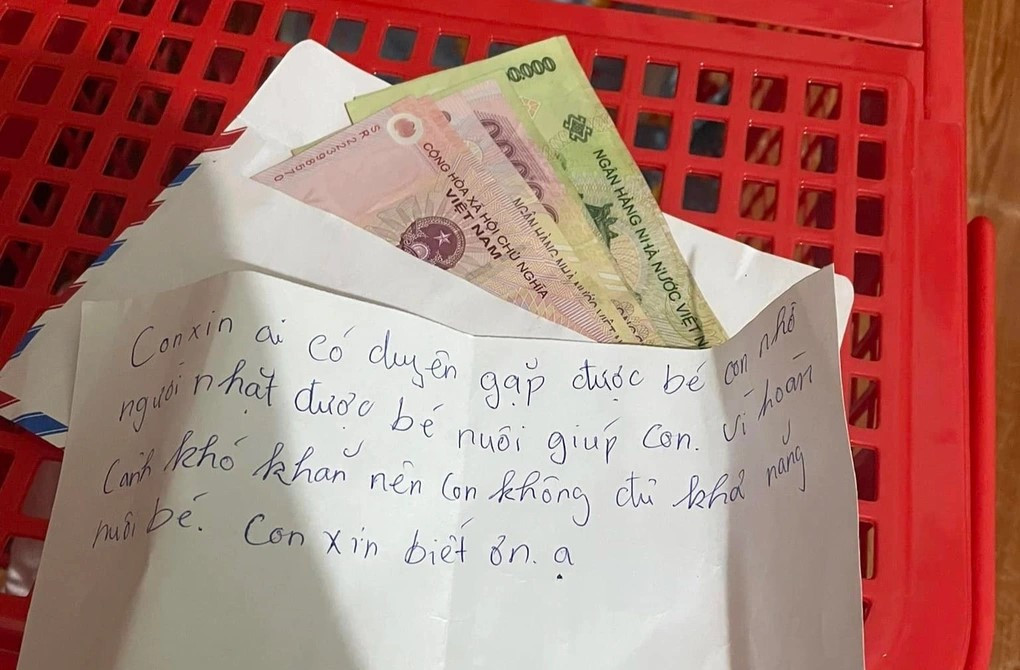 0.000
NGÂN HÀNG NHÀ NƯỚC VIỆT N
NGÂN HÀNG NHÀ NƯỚC VIỆT N
CỘNG HÒA XÃ HỘI CHỦ NGHĨA
VIỆT NAM
SR 2298570
Con xin ai có duyên gặp được bé con nhờ
người nhặt được bé nuôi giúp con. Vì hoàn
cảnh khó khăn nên con không đủ khả năng
nuôi bé. Con xin biết ơn. ạ